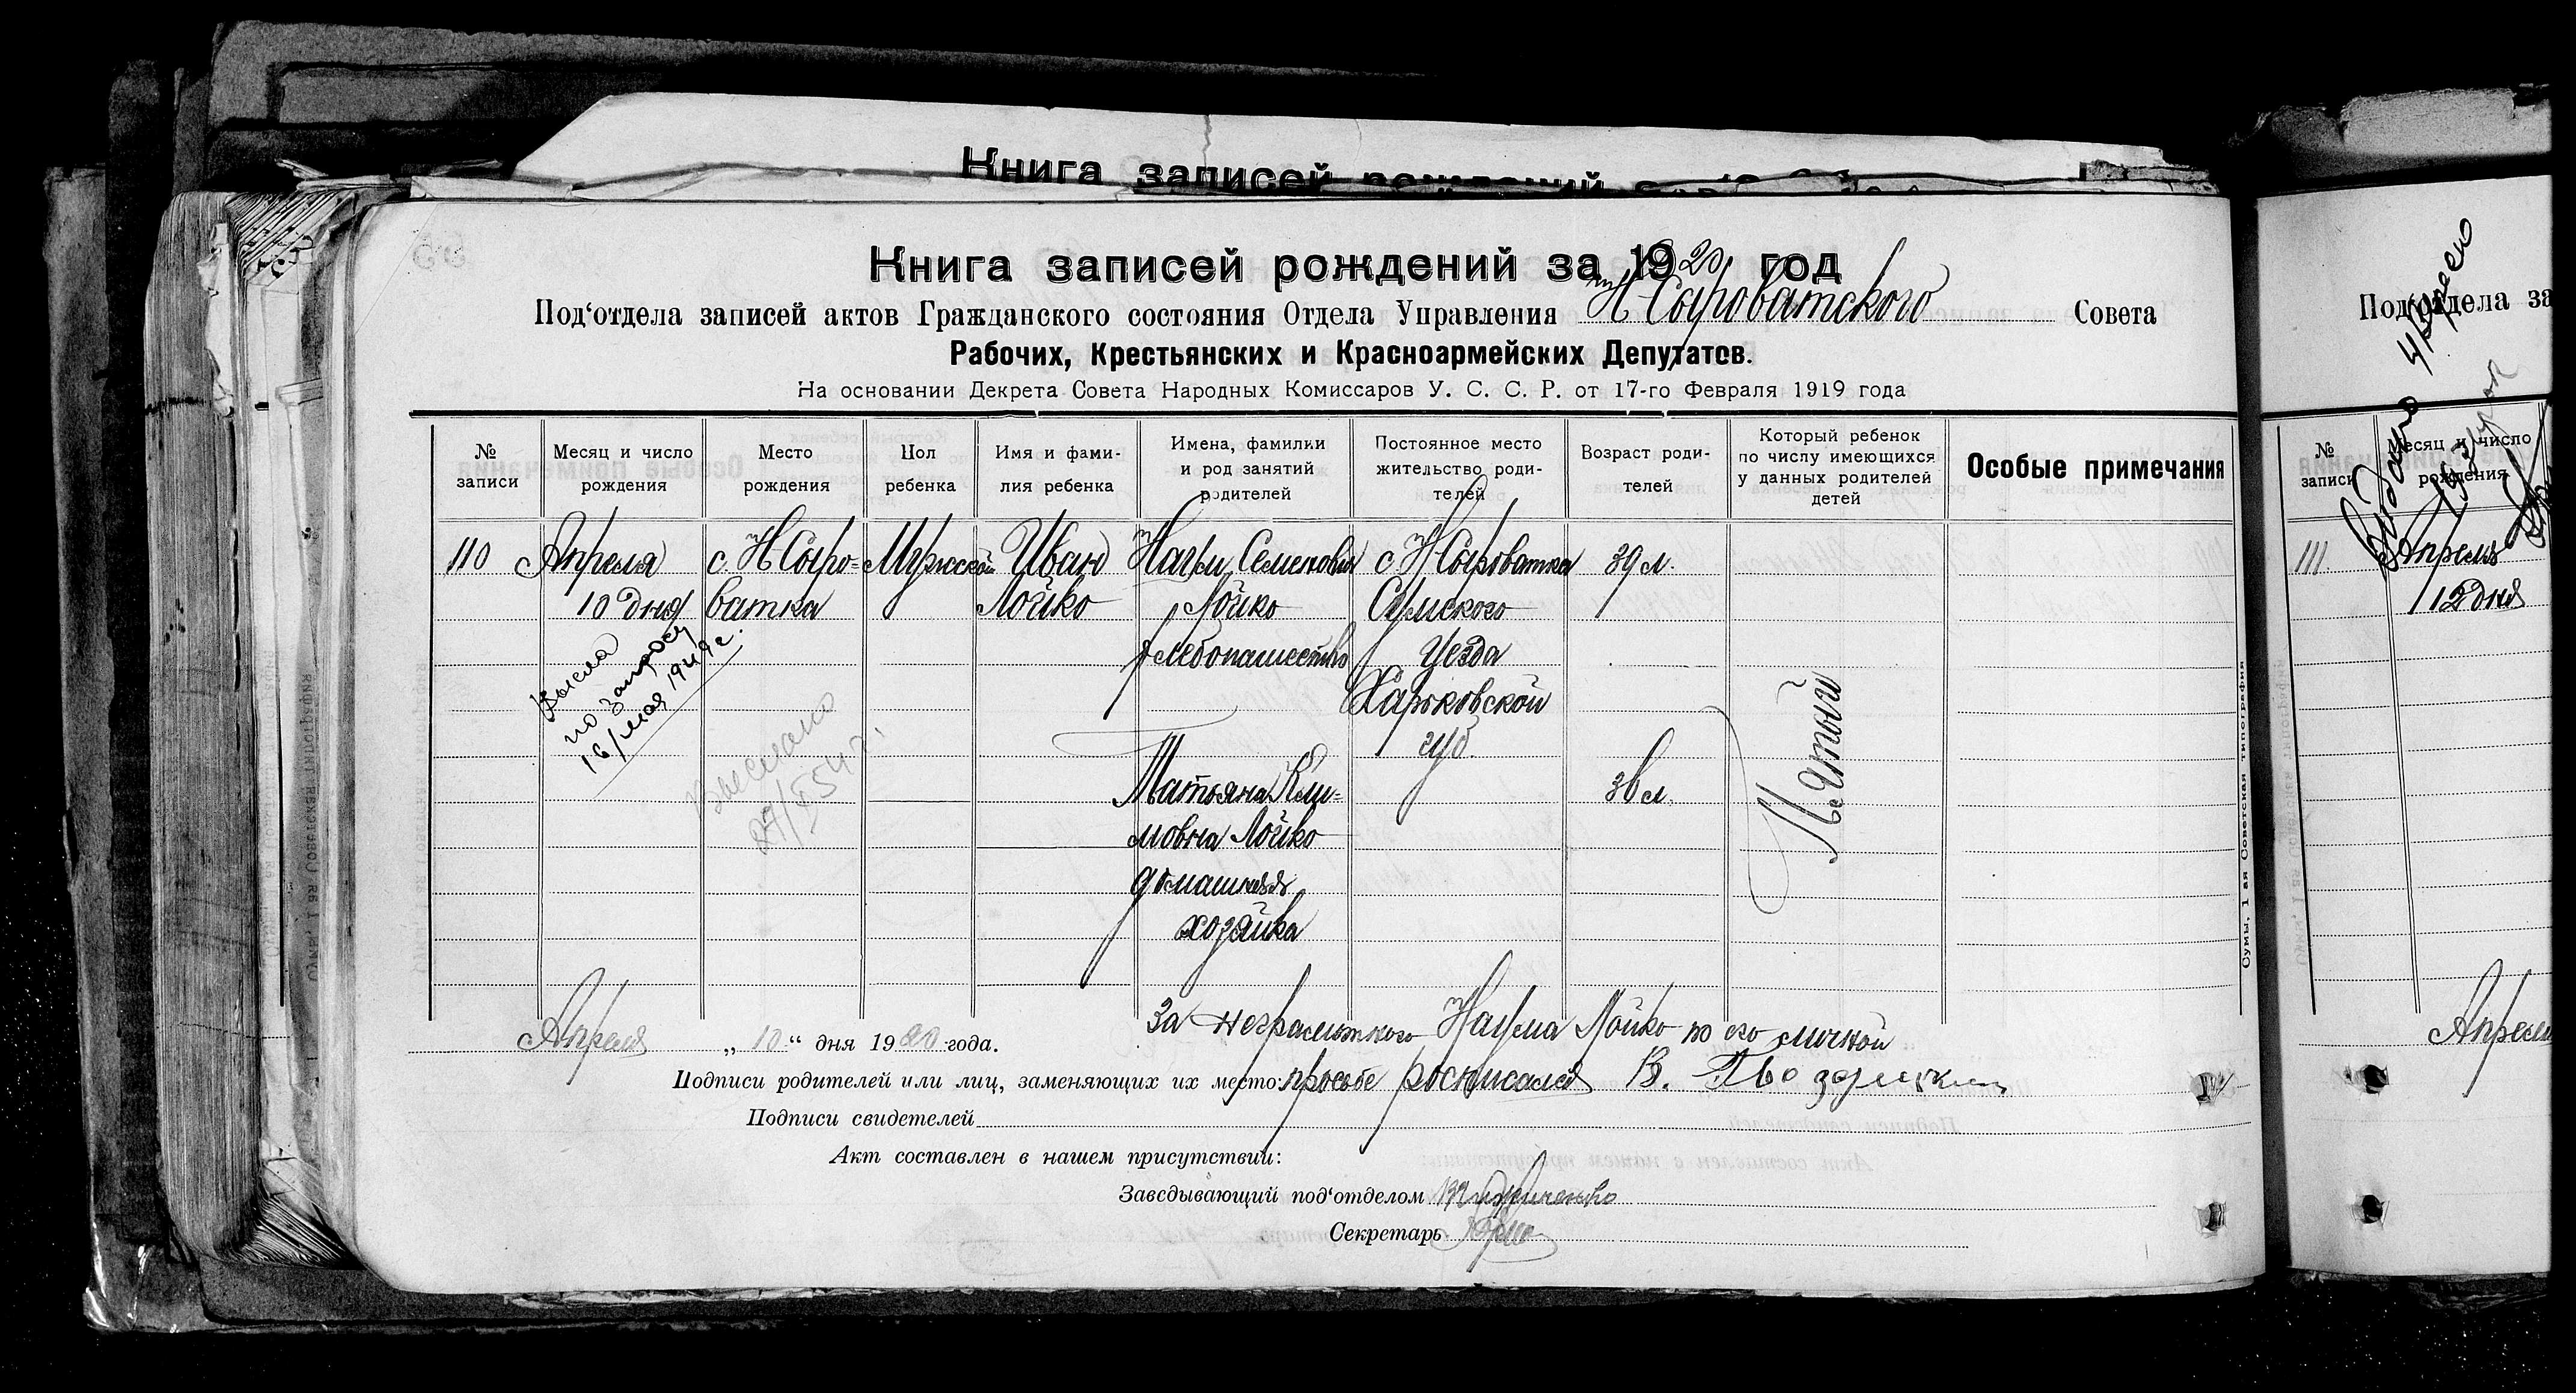 Книга записей рождений
Книга записей рождений за 1920 год
Под‘отдела записей актов Гражданского состояния Отдела Управления Н-Сыроватского Совета
Рабочих, Крестьянских и Красноармейских Депутатов.
На основании Декрета Совета Народных Комиссаров У. С. С. Р. от 17-го Февраля 1919 года
№ записи
Месяц и число рождения
Место рождения
Пол ребенка
Имя и фами-
лия ребенка
Имена, фамилии и род занятий родителей
Постоянное место жительство роди-
телей
Возраст роди-
телей
Который ребенок по числу имеющихся у данных родителей детей
Особые примечания
110
Апреля
10 дня
с. Н Сыро-
ватка
Мужской
Иван
Лойко
Наум Семенович
Лойко
хлебопашество
с Н Сыроватка
Сумского
Уезда
Харьковской
губ.
39 л.
Татьяна Кли-
мовна Лойко
домашняя
хозяйка
36 л.
Пятый
по запросу
16/мая 1949 г.
Выслано
Апреля „10“ дня 1920 года.
За неграмотного Наума Лойко по его личной
Подписи родителей или лиц, заменяющих их место: просьбе росписался В.
Подписи свидетелей
Акт составлен в нашем присутствии:
Заведывающий под‘отделом
Секретарь
Сумы, 1 ая Советская типография
Под‘отдела за
№ записи
Месяц и число рождения
111
Апреля
12 дня
Выдано